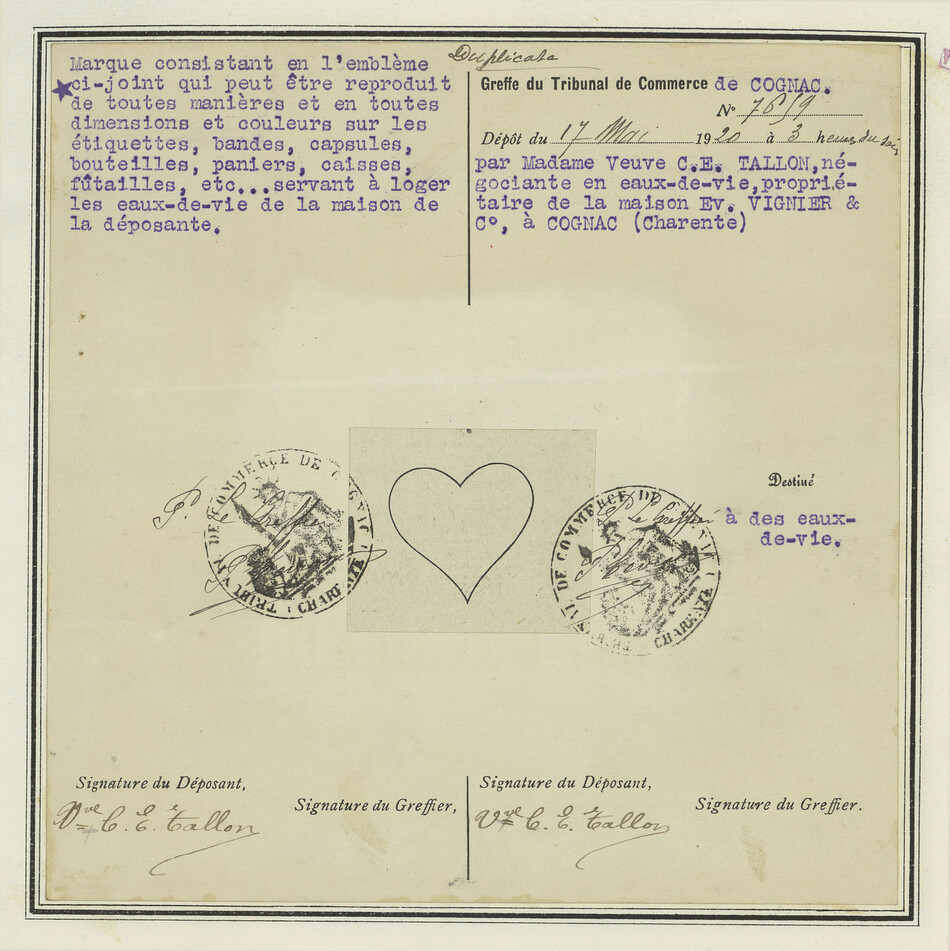 Duplicata
Marque consistant en l'emblème
ci-joint qui peut être reproduit
de toutes manières et en toutes
dimensions et couleurs sur les
étiquettes, bandes, capsules,
bouteilles, paniers, caisses,
fûtailles, etc...servant à loger
les eaux-de-vie de la maison de
la déposante.
Greffe du Tribunal de Commerce de COGNAC.
N° 7659
Dépôt du 17 Mai 1920 à 3 heures du soir
par Madame Veuve C.E. TALLON,né-
gociante en eaux-de-vie,proprié-
taire de la maison Ev. VIGNIER &
C°, à COGNAC (Charente)
P. le Greffier
TRIBUNAL DE COMMERCE DE COGNAC
CHARENTE
P. le Greffier
TRIBUNAL DE COMMERCE DE COGNAC
CHARENTE
Destiné
à des eaux-
de-vie.
Signature du Déposant,
Signature du Greffier,
Vve C. E. Tallon
Signature du Déposant,
Signature du Greffier.
Vve C. E. Tallon